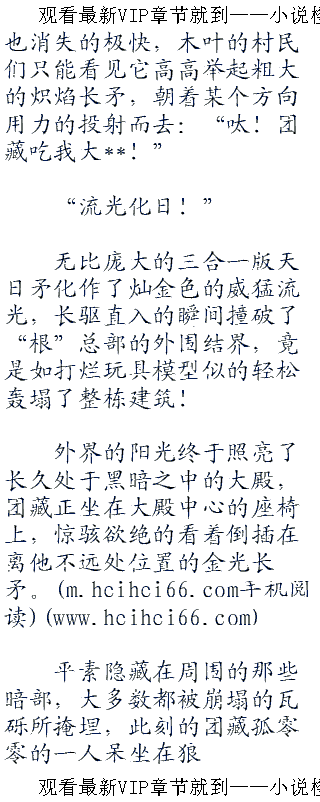 观看最新VIP章节就到——小说检
也消失的极快，木叶的村民
们只能看见它高高举起粗大
的炽焰长矛，朝着某个方向
用力的投射而去：“呔！团
藏吃我大**！”
“流光化日！”
无比庞大的三合一版天
日矛化作了灿金色的威猛流
光，长驱直入的瞬间撞破了
“根”总部的外围结界，竟
是如打烂玩具模型似的轻松
轰塌了整栋建筑！
外界的阳光终于照亮了
长久处于黑暗之中的大殿，
团藏正坐在大殿中心的座椅
上，惊骇欲绝的看着倒插在
离他不远处位置的金光长
矛。(m.hcihci66.com手机阅
读)(www.hcihci66.com)
平素隐藏在周围的那些
暗部，大多数都被崩塌的瓦
砾所掩埋，此刻的团藏孤零
零的一人呆坐在狼
观看最新VIP章节就到——小说检